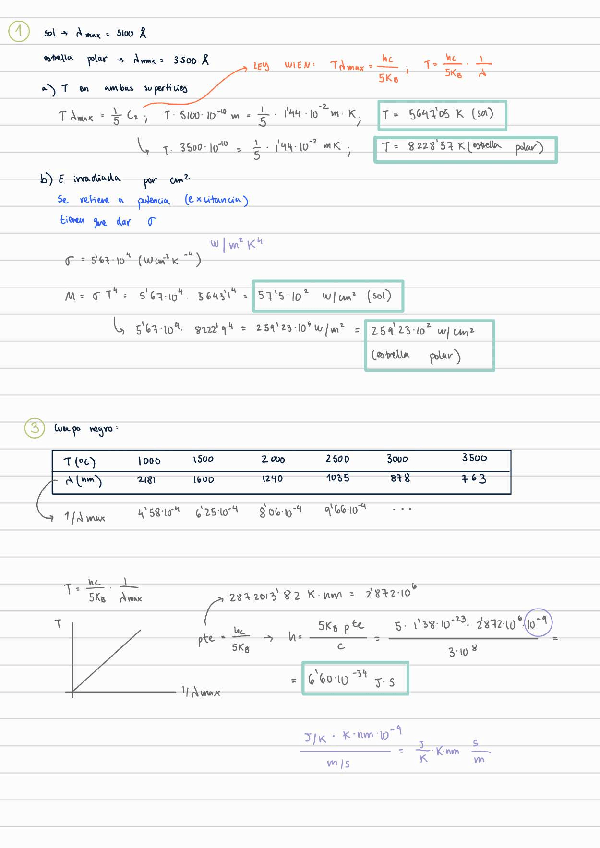 1 sol → λmax = 5100 Å
estrella polar → λmax = 3500 Å
LEY WIEN: Tλmax = hc/5KB ; T = hc/5KB · 1/λ
a) T en ambas superficies
Tλmax = 1/5 C₂ ; T · 5100·10⁻¹⁰ m = 1/5 · 1'44·10⁻² m·K ; T = 5647'05 K (sol)
↳ T · 3500·10⁻¹⁰ = 1/5 · 1'44·10⁻² m K ; T = 8228'57 K (estrella polar)
b) E irradiada por cm²
Se refiere a potencia (exitancia)
tienen que dar σ
W/m² K⁴
σ = 5'67·10⁴ (W·m⁻² K⁻⁴)
M = σ T⁴ = 5'67·10⁴ · 5643'1⁴ = 57'5 10² W/cm² (sol)
↳ 5'67·10⁴ · 8222'9⁴ = 259'23·10⁶ W/m² = 259'23·10² W/cm²
(estrella polar)
3 Cuerpo negro:
T(ºC) 1000 1500 2000 2500 3000 3500
λ(nm) 2181 1600 1240 1035 878 763
1/λmax 4'58·10⁻⁴ 6'25·10⁻⁴ 8'06·10⁻⁴ 9'66·10⁻⁴ ...
T = hc/5KB · 1/λmax
2872013'82 K·nm = 2'872·10⁶
T
pte = hc/5KB → h = 5KB pte/c = 5 · 1'38·10⁻²³ · 2'872·10⁶ · 10⁻⁹/3·10⁸ =
1/λmax
= 6'60·10⁻³⁴ J·s
J/K · K·nm·10⁻⁹/m/s = J/K · K·nm s/m